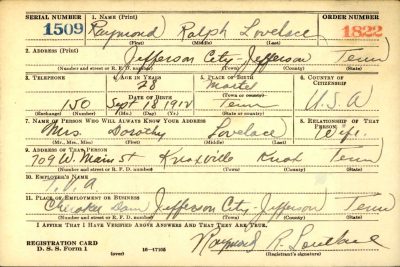 SERIAL NUMBER 1. NAME (Print) ORDER NUMBER
1509 Raymond Ralph Lovelace 1822
(First) (Middle) (Last)
2. ADDRESS (Print)
Jefferson City - Jefferson Tenn
(Number and street or R. F. D. number) (Town) (County) (State)
3. TELEPHONE 4. AGE IN YEARS 5. PLACE OF BIRTH 6. COUNTRY OF CITIZENSHIP
28
DATE OF BIRTH (Town or county)
150 Sept 18 1912 Tenn U.S.A
(Exchange) (Number) (Mo.) (Day) (Yr.) (State or country)
7. NAME OF PERSON WHO WILL ALWAYS KNOW YOUR ADDRESS 8. RELATIONSHIP OF THAT PERSON
Mrs. Dorothy Lovelace Wife.
(Mr., Mrs., Miss) (First) (Middle) (Last)
9. ADDRESS OF THAT PERSON
709 W. Main St Knoxville Knox Tenn
(Number and street or R. F. D. number) (Town) (County) (State)
10. EMPLOYER'S NAME
T.V.A
11. PLACE OF EMPLOYMENT OR BUSINESS
Cherokee Dam Jefferson City - Jefferson Tenn
(Number and street or R. F. D. number) (Town) (County) (State)
I AFFIRM THAT I HAVE VERIFIED ABOVE ANSWERS AND THAT THEY ARE TRUE.
Raymond R. Lovelace
REGISTRATION CARD
D. S. S. Form 1 16-17105 (Registrant's signature)